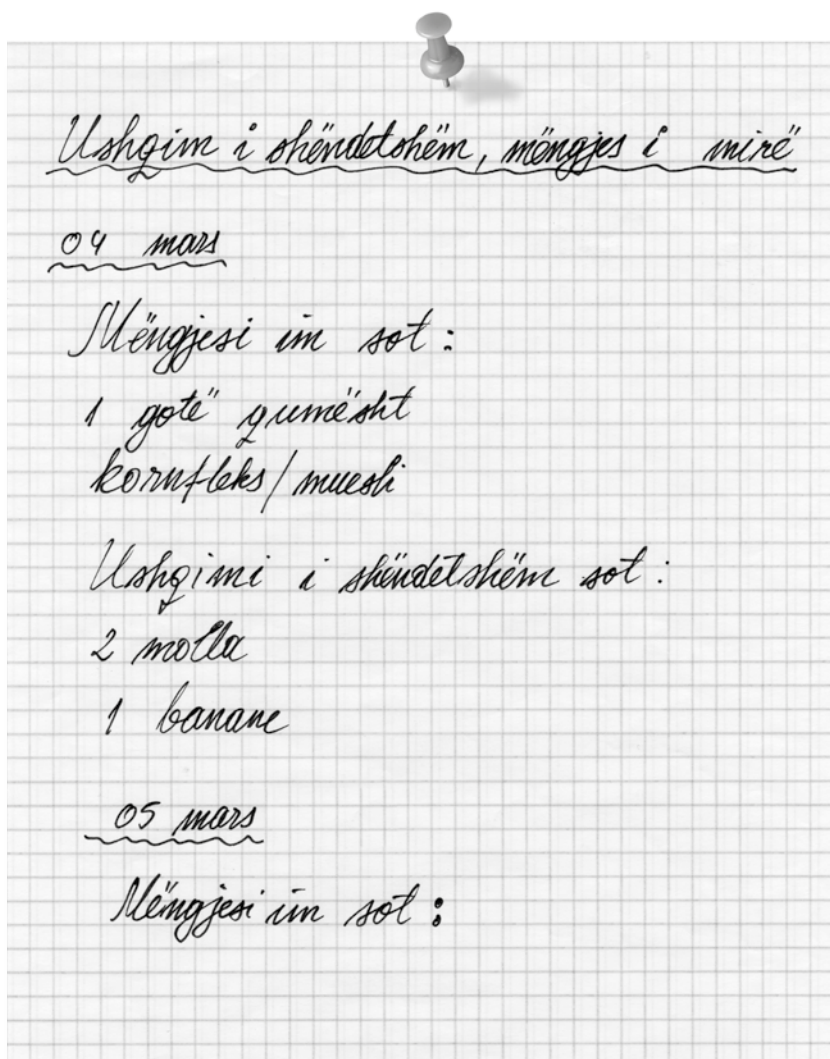 Ushqim i shëndetshëm, mëngjes i mirë
04 mars
Mëngjesi im sot:
1 gotë qumësht
kornfleks/muesli
Ushqimi i shëndetshëm sot:
2 molla
1 banane
05 mars
Mëngjesi im sot: